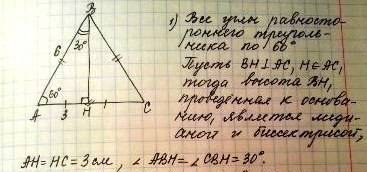 B
30°
6
60°
A
3
H
C
1) Все углы равносто-
роннего треуголь-
ника по 60°
Пусть BH⊥AC, H∈AC,
тогда высота BH,
проведённая к основа-
нию, является меди-
аной и биссектрисой,
AH=HC=3 см, ∠ABH=∠CBH=30°.